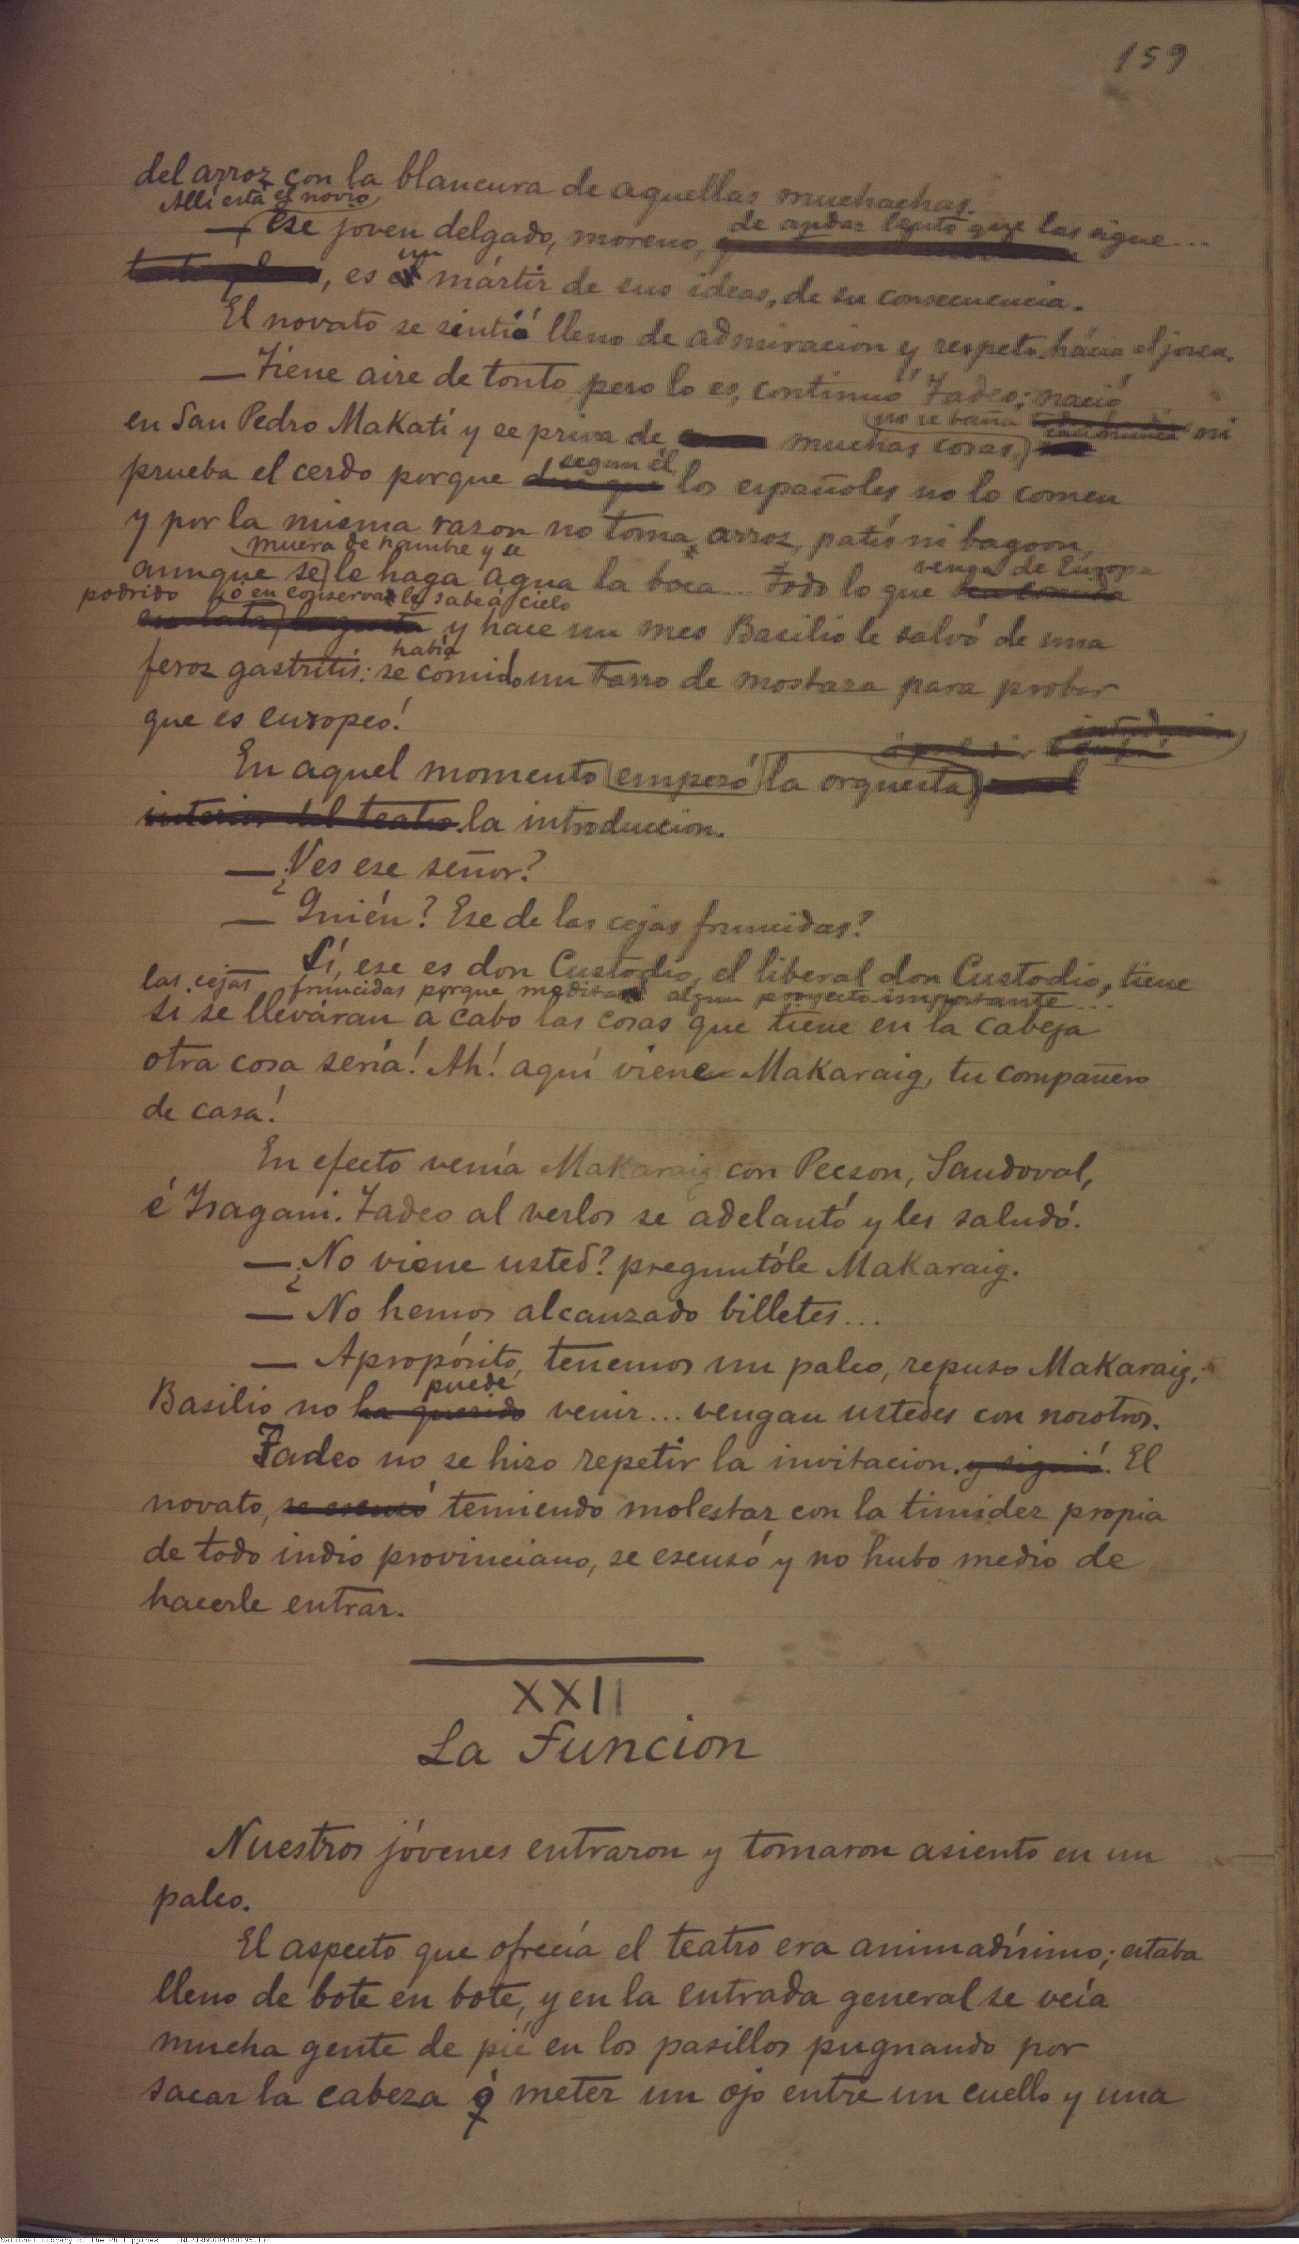 159
del arroz con la blancura de aquellas muchachas.
Allí está el novio,
— Ese joven delgado, moreno, de andar lento que las sigue...
, es un mártir de sus ideas, de su consecuencia.
El novato se sintió lleno de admiracion y respeto hácia el joven.
— Tiene aire de tonto, pero lo es, continuó Tadeo; nació
en San Pedro Makati y se priva de muchas cosas, no se baña casi nunca ni
prueba el cerdo porque segun él los españoles no lo comen
y por la misma razon no toma arroz, patis ni bagoon,
aunque se muera de hambre y se le haga agua la boca... Todo lo que venga de Europa
podrido ó en conserva le sabe á cielo
en lata, le gusta y hace un mes Basilio le salvó de una
feroz gastritis: se había comido un tarro de mostaza para probar
que es europeo!
En aquel momento empezó la orquesta
interior del teatro. la introduccion.
— ¿Ves ese señor?
— Quién? Ese de las cejas fruncidas?
Sí, ese es don Custodio, el liberal don Custodio, tiene
las cejas fruncidas porque medita algun proyecto importante...
si se llevaran a cabo las cosas que tiene en la cabeza
otra cosa sería! Ah! aquí viene Makaraig, tu compañero
de casa!
En efecto venía Makaraig con Pecson, Sandoval,
é Isagani. Tadeo al verlos se adelantó y les saludó.
— ¿No viene usted? preguntóle Makaraig.
— No hemos alcanzado billetes...
— Apropósito, tenemos un palco, repuso Makaraig;
Basilio no ha querido puede venir... vengan ustedes con nosotros.
Tadeo no se hizo repetir la invitacion. y siguió. El
novato, se escusó temiendo molestar con la timidez propia
de todo indio provinciano, se escusó y no hubo medio de
hacerle entrar.
XXII
La Funcion
Nuestros jóvenes entraron y tomaron asiento en un
palco.
El aspecto que ofrecía el teatro era animadísimo; estaba
lleno de bote en bote, y en la entrada general se veía
mucha gente de pié en los pasillos pugnando por
sacar la cabeza ó meter un ojo entre un cuello y una